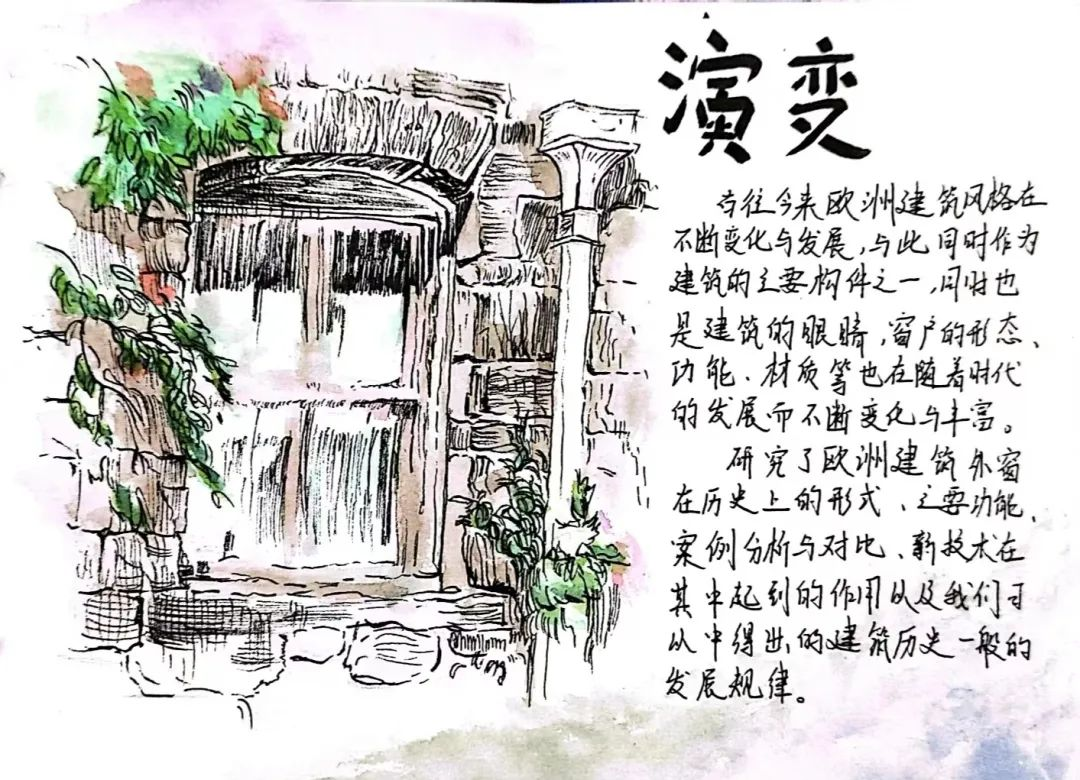 演变
古往今来欧洲建筑风格在
不断变化与发展,与此同时作为
建筑的主要构件之一,同时也
是建筑的眼睛,窗户的形态、
功能、材质等也在随着时代
的发展而不断变化与丰富。
研究了欧洲建筑外窗
在历史上的形式、主要功能、
案例分析与对比、新技术在
其中起到的作用以及我们可
从中得出的建筑历史一般的
发展规律。